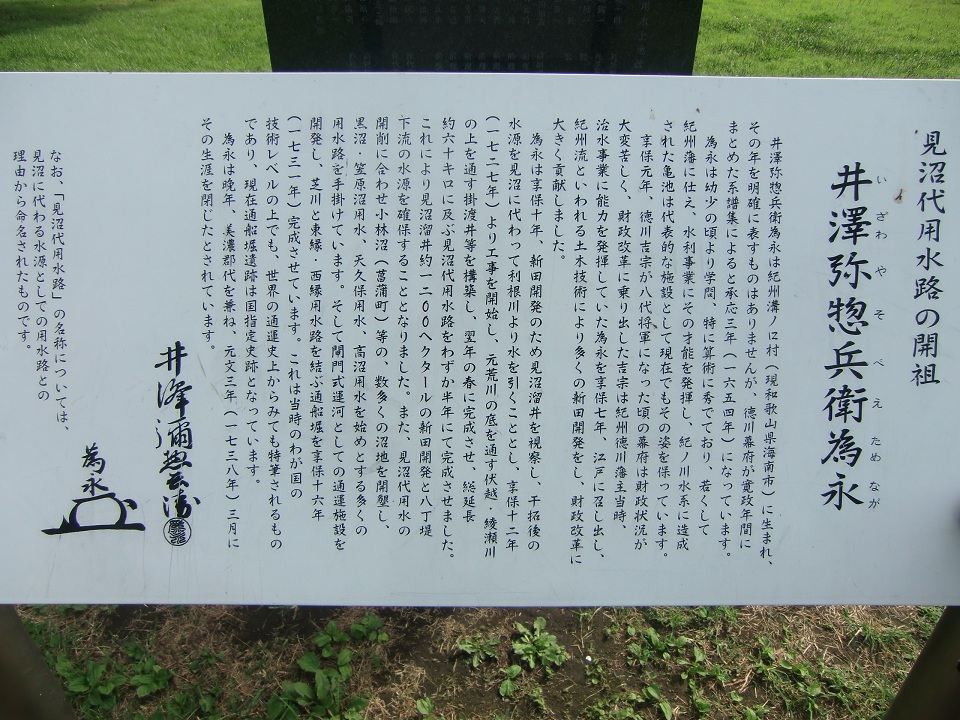 見沼代用水路の開祖
井澤弥惣兵衛為永
い ざわ や そ べ え ため なが
井澤弥惣兵衛為永は紀州溝ノ口村（現和歌山県海南市）に生まれ、
その年を明確に表すものはありませんが、徳川幕府が寛政年間に
まとめた系譜集によると承応三年（一六五四年）になっています。
為永は幼少の頃より学問、特に算術に秀でており、若くして
紀州藩に仕え、水利事業にその才能を発揮し、紀ノ川水系に造成
された亀池は代表的な施設として現在でもその姿を保っています。
享保元年、徳川吉宗が八代将軍になった頃の幕府は財政状況が
大変苦しく、財政改革に乗り出した吉宗は紀州徳川藩主当時、
治水事業に能力を発揮していた為永を享保七年、江戸に召し出し、
紀州流といわれる土木技術により多くの新田開発をし、財政改革に
大きく貢献しました。
為永は享保十年、新田開発のため見沼溜井を視察し、干拓後の
水源を見沼に代わって利根川より水を引くこととし、享保十二年
（一七二七年）より工事を開始し、元荒川の底を通す伏越・綾瀬川
の上を通す掛渡井等を構築し、翌年の春に完成させ、総延長
約六十キロに及ぶ見沼代用水路をわずか半年にて完成させました。
これにより見沼溜井約一二〇〇ヘクタールの新田開発と八丁堤
下流の水源を確保することとなりました。また、見沼代用水の
開削に合わせ小林沼（菖蒲町）等の、数多くの沼地を開墾し、
黒沼・笠原沼用水、天久保用水、高沼用水を始めとする多くの
用水路を手掛けています。そして閘門式運河としての通運施設を
開発し、芝川と東縁・西縁用水路を結ぶ通船堀を享保十六年
（一七三一年）完成させています。これは当時のわが国の
技術レベルの上でも、世界の通運史上からみても特筆されるもの
であり、現在通船堀遺跡は国指定史跡となっています。
為永は晩年、美濃郡代を兼ね、元文三年（一七三八年）三月に
その生涯を閉じたとされています。
井澤彌惣兵衛
為永
なお、「見沼代用水路」の名称については、
見沼に代わる水源としての用水路との
理由から命名されたものです。